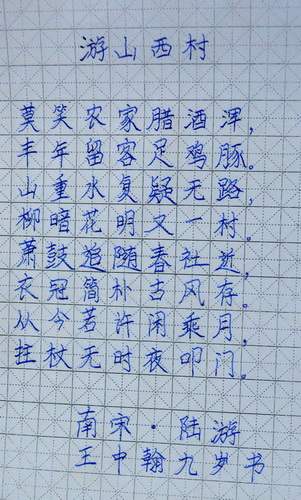 游山西村
莫笑农家腊酒浑，
丰年留客足鸡豚。
山重水复疑无路，
柳暗花明又一村。
萧鼓追随春社近，
衣冠简朴古风存。
从今若许闲乘月，
拄杖无时夜叩门。
南宋·陆游
王中翰九岁书